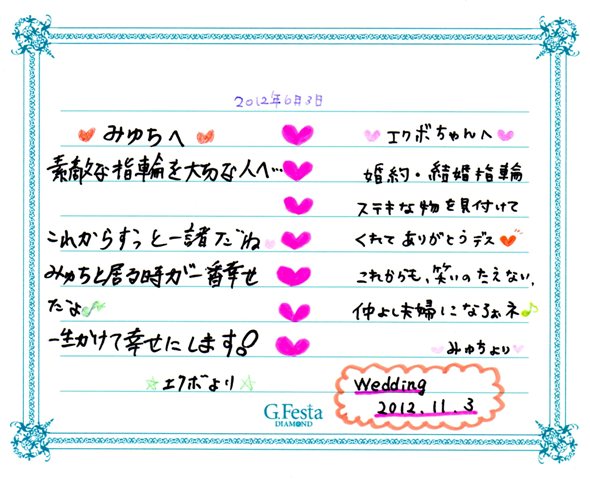 2012年6月3日
みゅちへ
素敵な指輪を大切な人へ…
これからずっと一諸だね
みゅちと居る時が一番幸せ
だよ
一生かけて幸せにします!
エクボより
エクボちゃんへ
婚約・結婚指輪
ステキな物を見付けて
くれてありがとうデス
これからも、笑いのたえない、
仲よし夫婦になろぉネ
みゅちより
Wedding
2012.11.3
G.Festa
DIAMOND